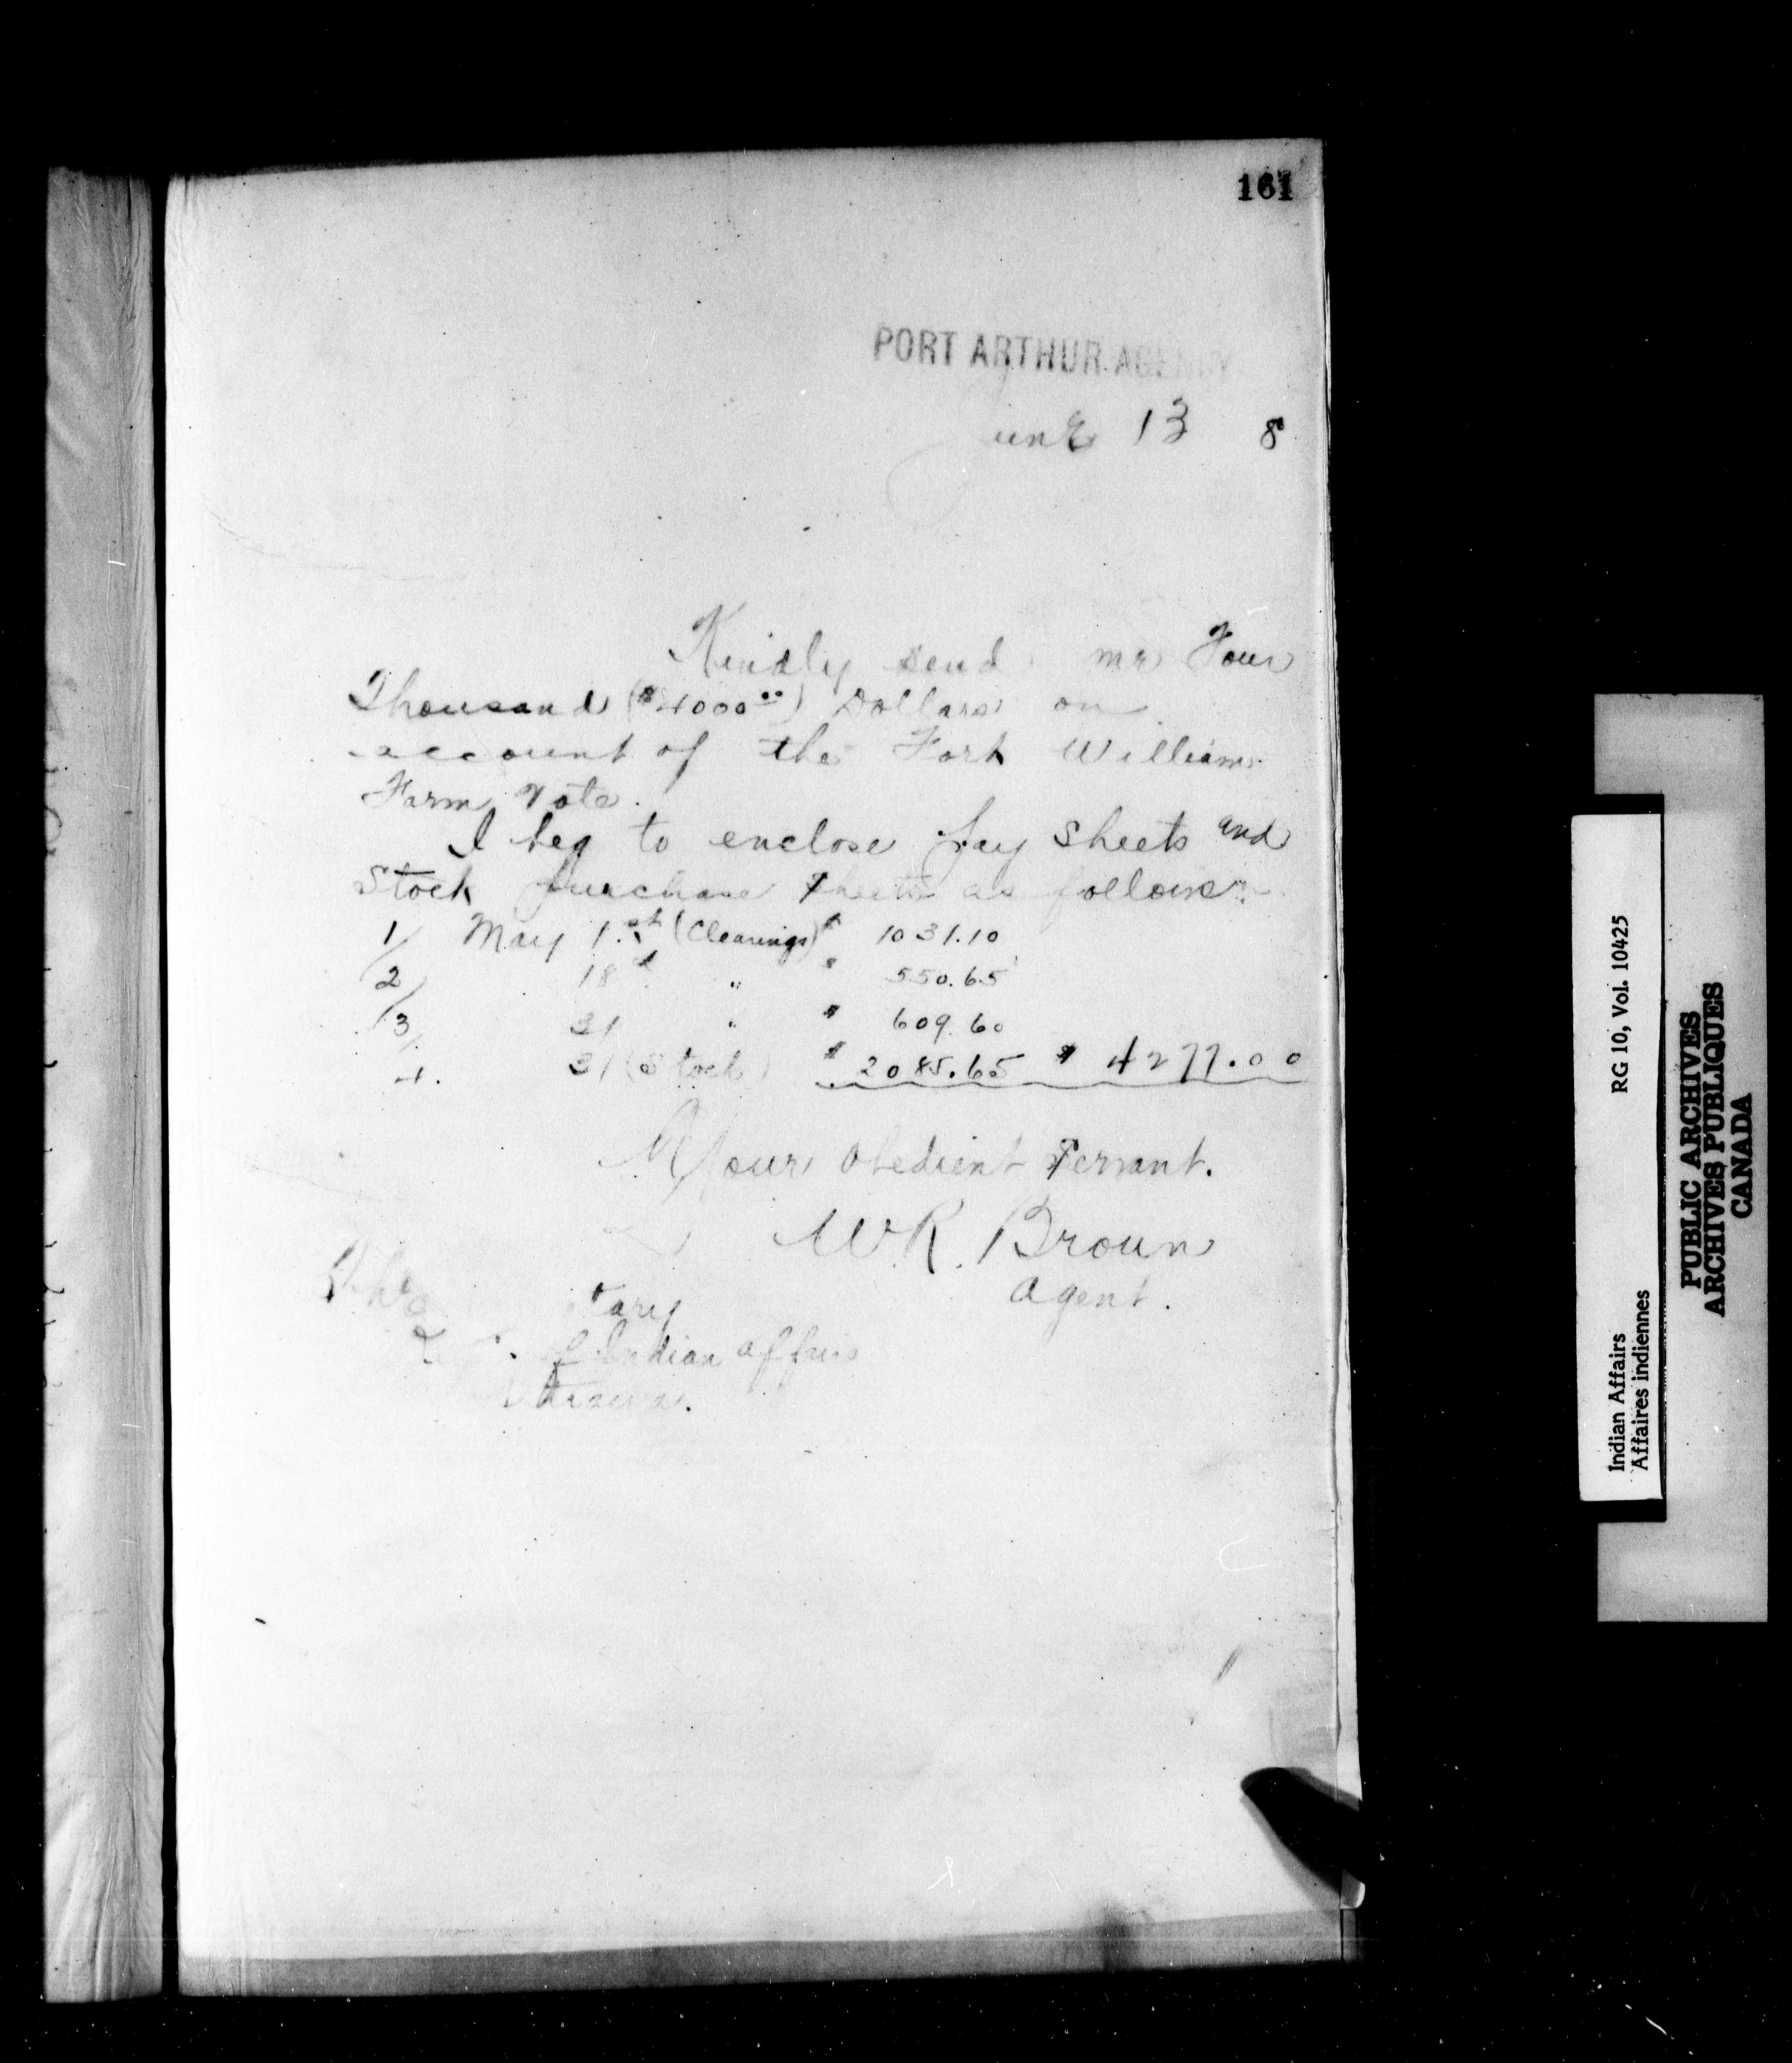 161
PORT ARTHUR AGENCY
June 13 8
Kindly send me Four
Thousand ($4000 00) Dollars on
account of the Fort William
Farm Vote.
I beg to enclose Pay Sheets and
Stock purchase Sheets as follows:-
1/ May 1.st (Clearings) $ 1031.10
2/ 18 " $ 550.65
3/ 31 " $ 609.60
4. 31 (Stock) $ 2085.65 $ 4277.00
Your obedient Servant.
W.R. Brown
Agent.
The tary
of Indian affairs
Ottawa.
Indian Affairs RG 10, Vol. 10425
Affaires indiennes
PUBLIC ARCHIVES
ARCHIVES PUBLIQUES
CANADA